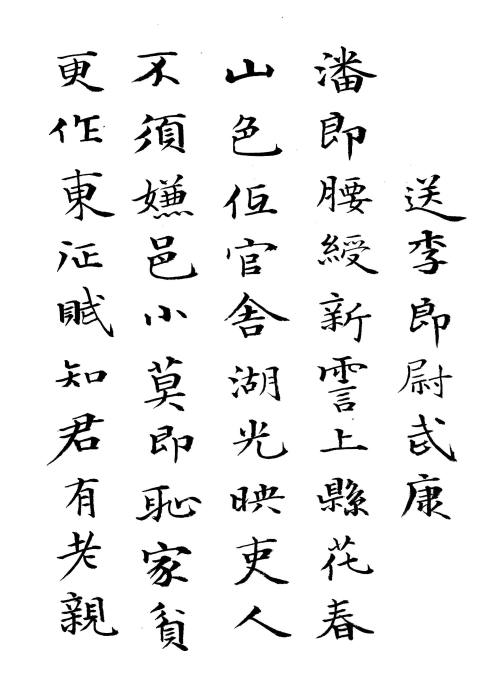 送李郎尉武康
潘郎腰綬新霅上縣花春
山色低官舍湖光映吏人
不須嫌邑小莫即恥家貧
更作東征賦知君有老親